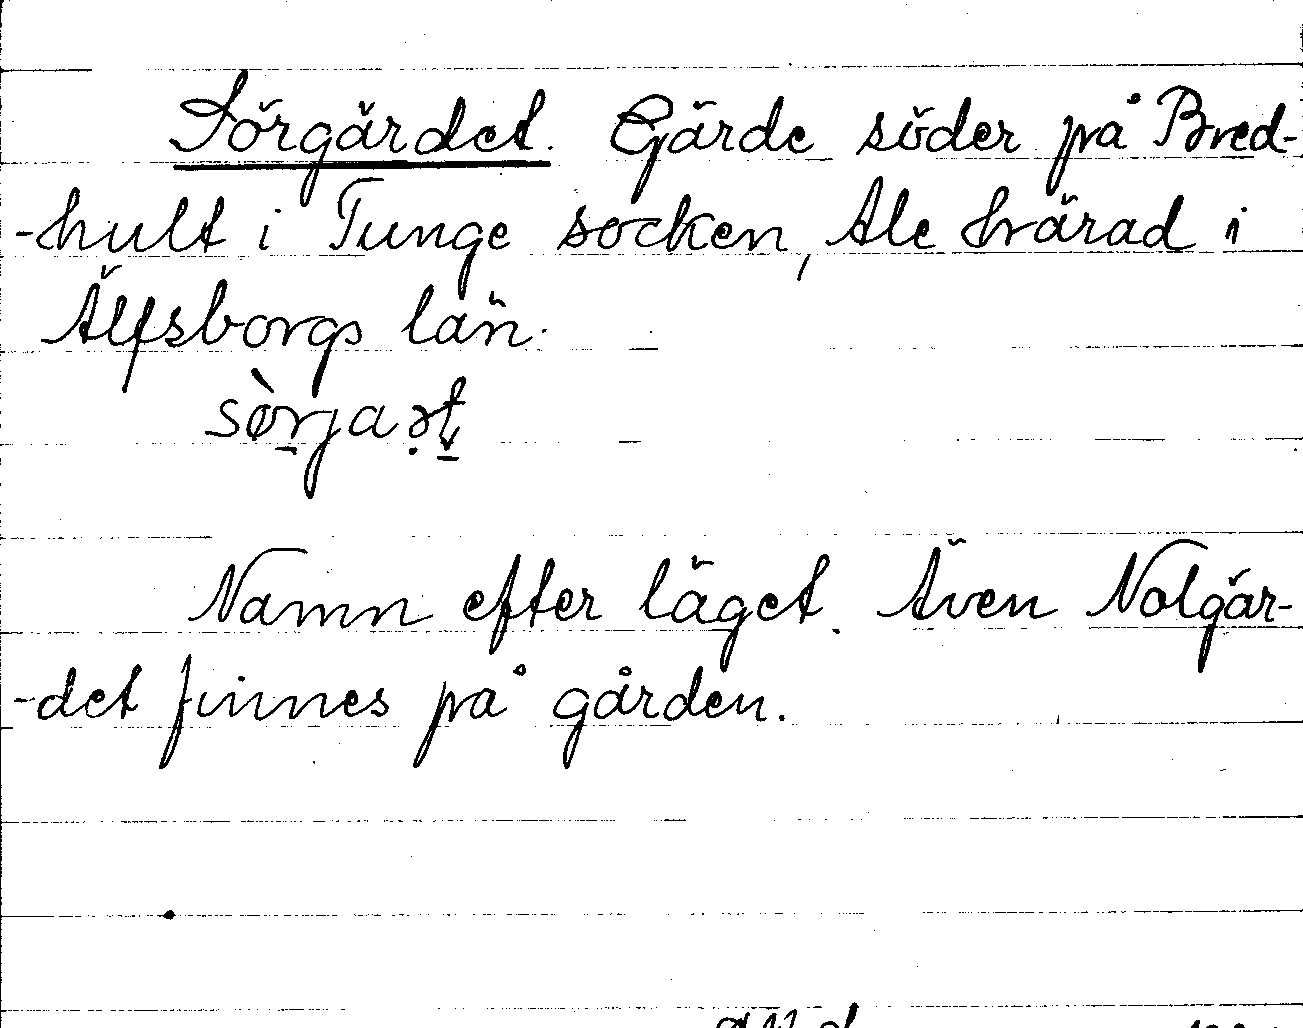 Sörgärdet. Gärde söder på Bred-
-hult i Tunge socken, Ale härad i
Älfsborgs län.
Namn efter läget. Även Nolgär-
-det finnes på gården.